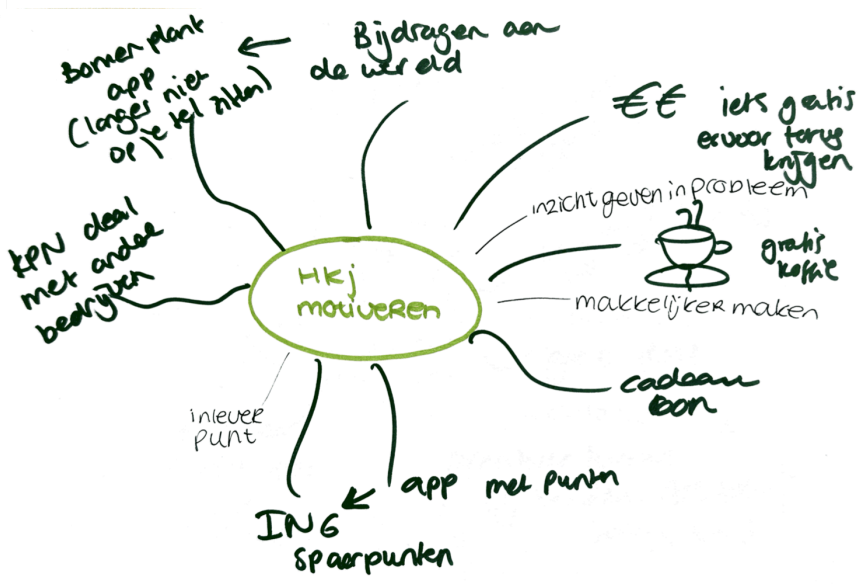 Bomen plant
app
(langer niet
op je tel zitten)
Bijdragen aan
de wereld
€€ iets gratis
ervoor terug
krijgen
inzicht geven in probleem
gratis
koffie
makkelijker maken
cadeau
bon
app met punten
ING
spaarpunten
inlever
punt
KPN deal
met andere
bedrijven
HKj
motiveren